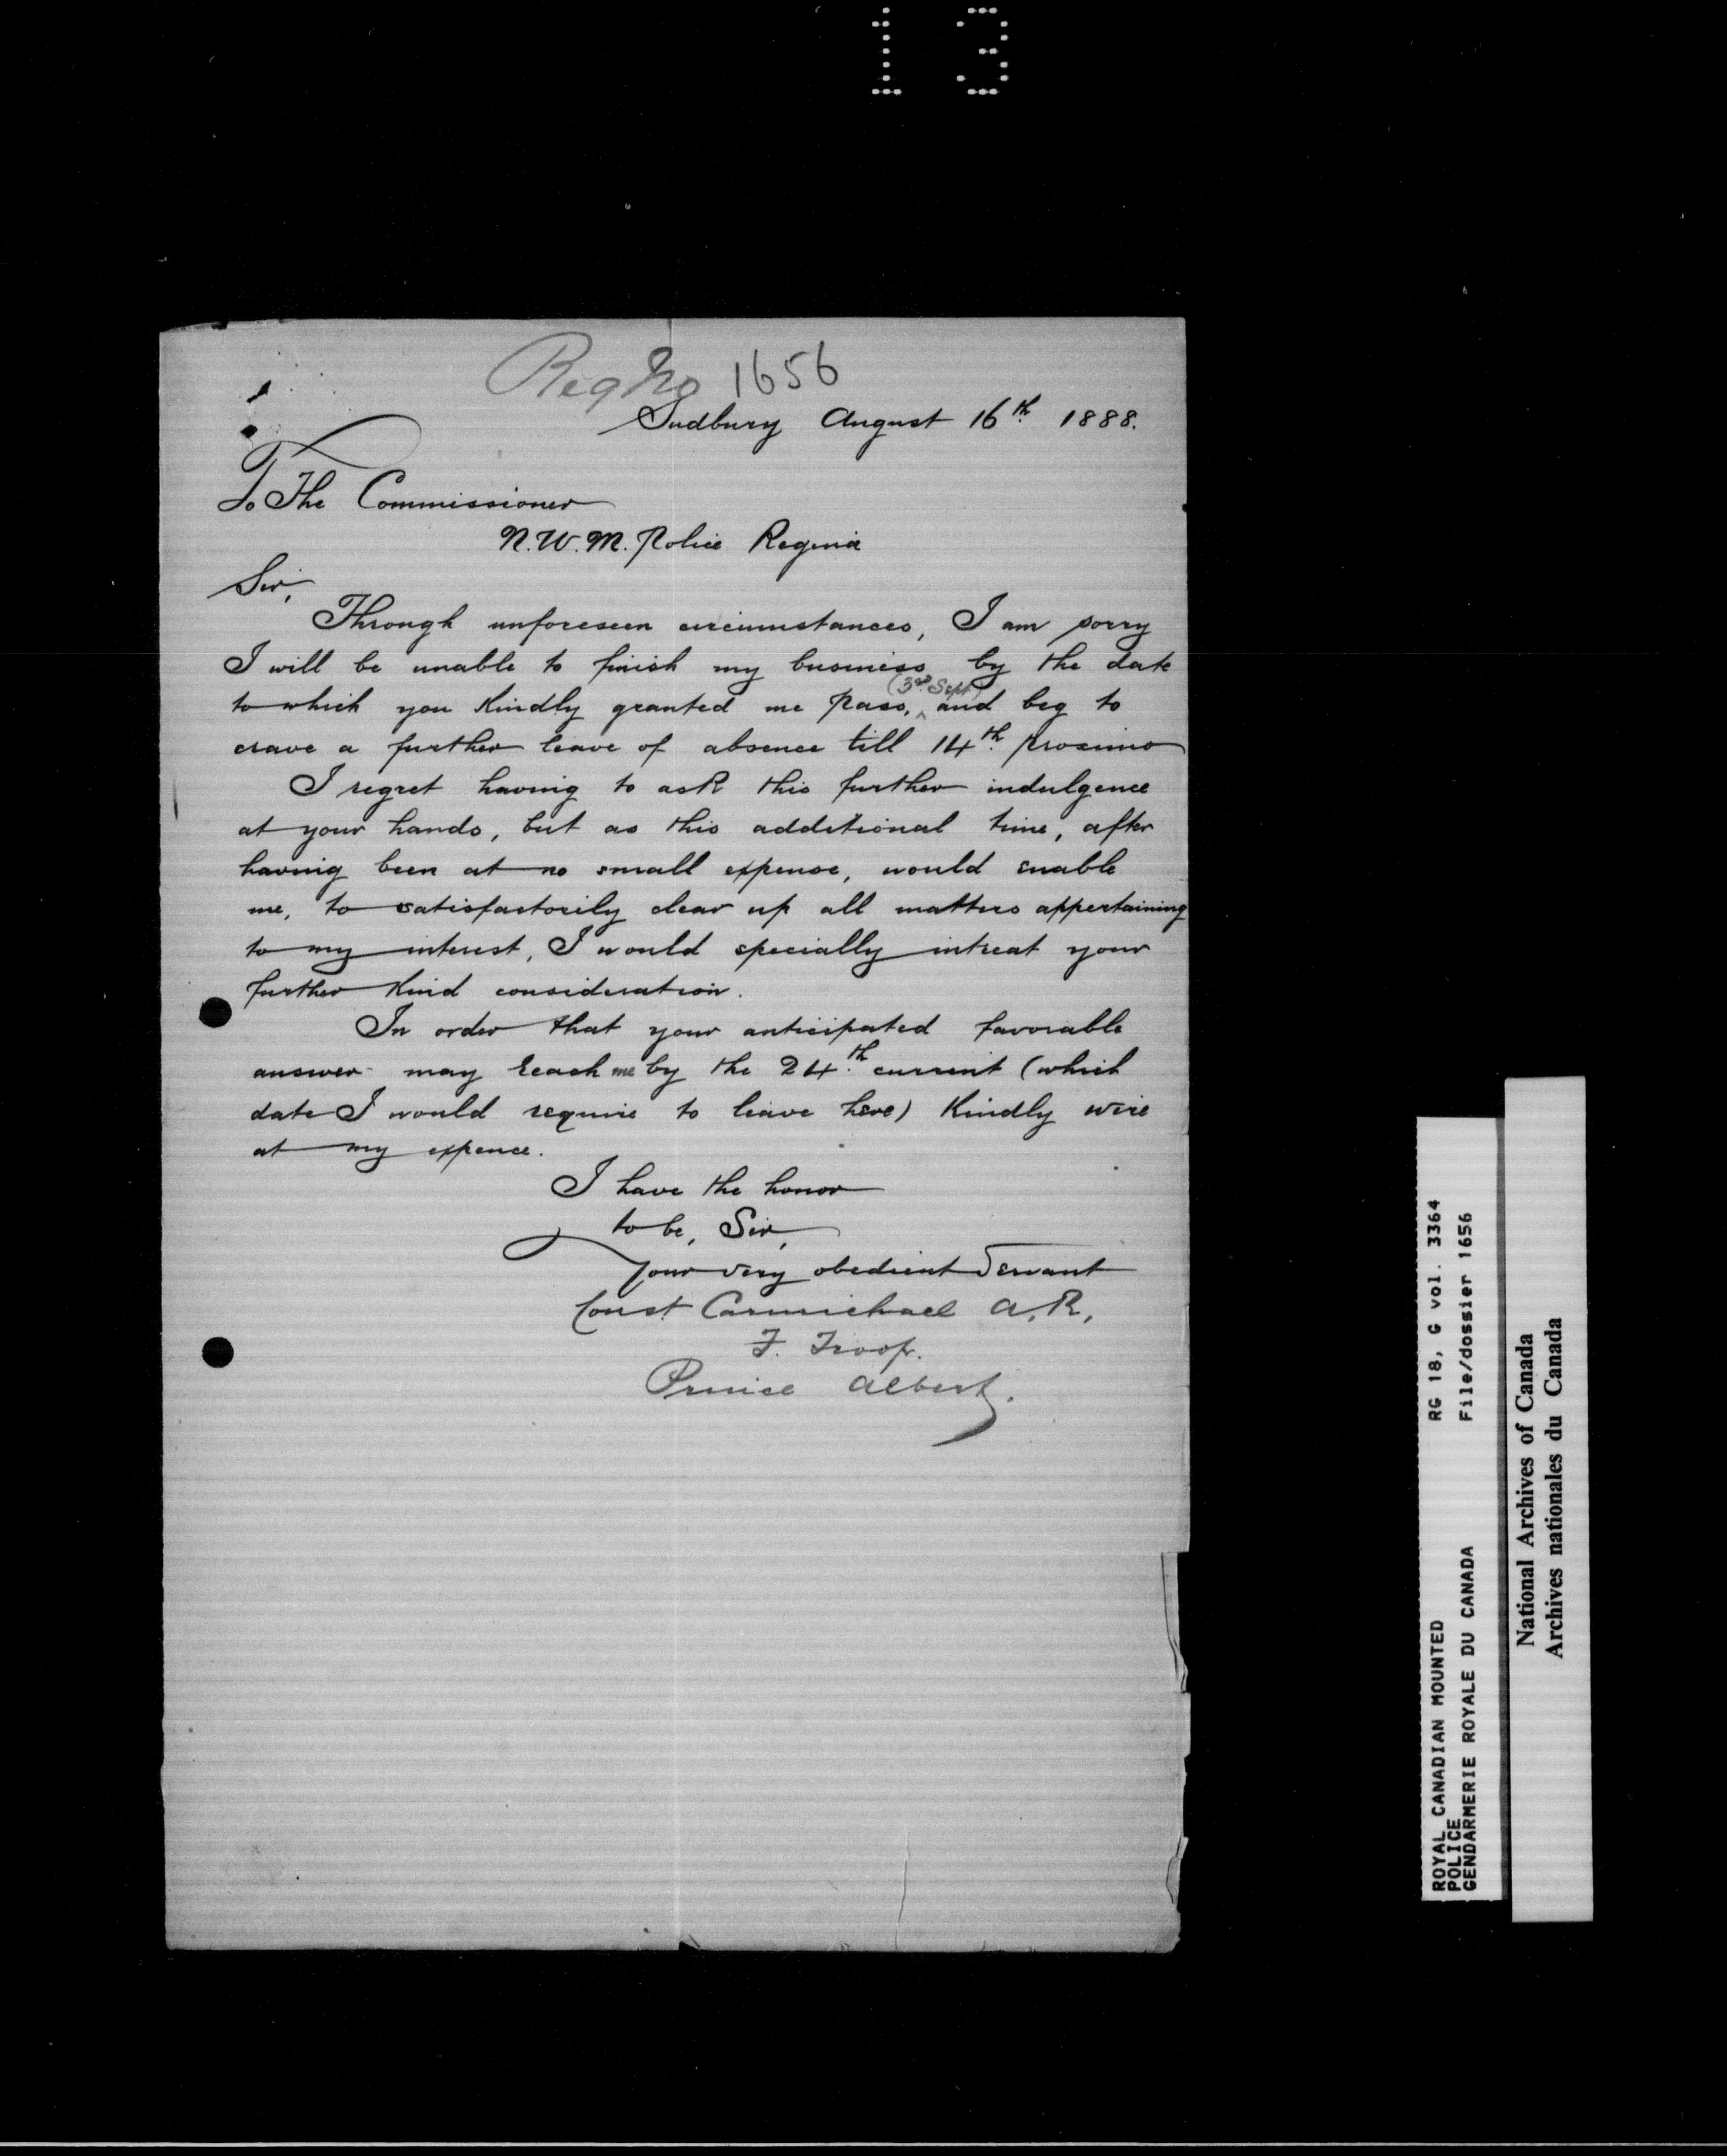 13
Reg No 1656
Sudbury August 16th 1888.
To The Commissioner
N.W.M. Police Regina
Sir,
Through unforeseen circumstances, I am sorry
I will be unable to finish my business by the date
(3rd Sept)
to which you kindly granted me pass, ^ and beg to
crave a further leave of absence till 14th. proximo
I regret having to ask this further indulgence
at your hands, but as this additional time, after
having been at no small expense, would enable
me, to satisfactorily clear up all matters appertaining
to my interest, I would specially intreat your
further kind consideration.
In order that your anticipated favorable
answer may reach me by the 24th. current (which
date I would require to leave here) Kindly wire
at my expence.
I have the honor
to be, Sir,
Your very obedient Servant
Const Carmichael A.R.
F. Troop.
Prince Albert.
ROYAL CANADIAN MOUNTED
POLICE
GENDARMERIE ROYALE DU CANADA
RG 18, G vol. 3364
File/dossier 1656
National Archives of Canada
Archives nationales du Canada